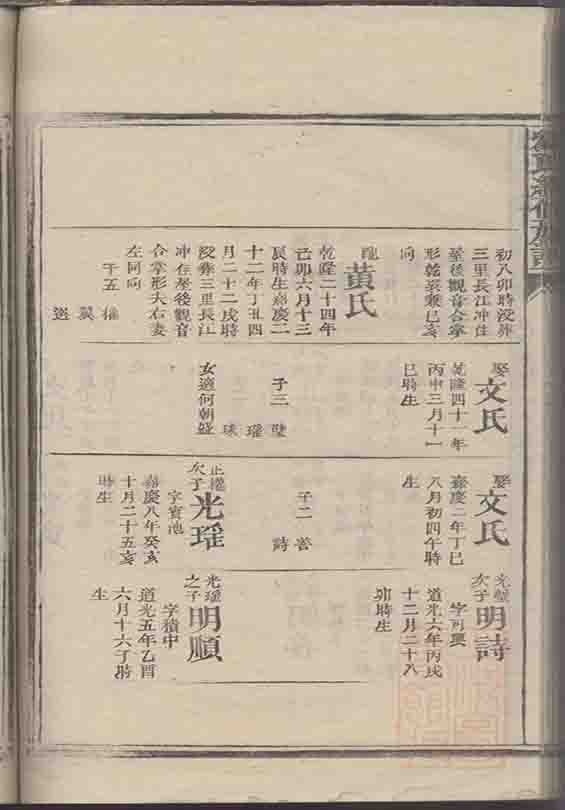 初八卯時沒葬
三里長江冲住
屋後觀音合掌
形乾巽兼巳亥
向
黃氏
乾隆二十四年
己卯六月十三
辰時生嘉慶二
十二年丁丑四
月二十二戌時
沒葬三里長江
冲住屋後觀音
合掌形夫右妻
左同向
子五 權
翼
選
娶文氏
乾隆四十一年
丙申三月十一
巳時生
子三 璧
瑤
球
女適何朝
娶文氏
嘉慶二年丁巳
八月初四午時
生
子二
詩
正權次子光瑤
字寶池
嘉慶八年癸亥
十月二十五亥
時生
光璧次子明詩
字可興
道光六年丙戌
十二月二十八
卯時生
光瑤之子明順
字積中
道光五年乙酉
六月十六丁時
生